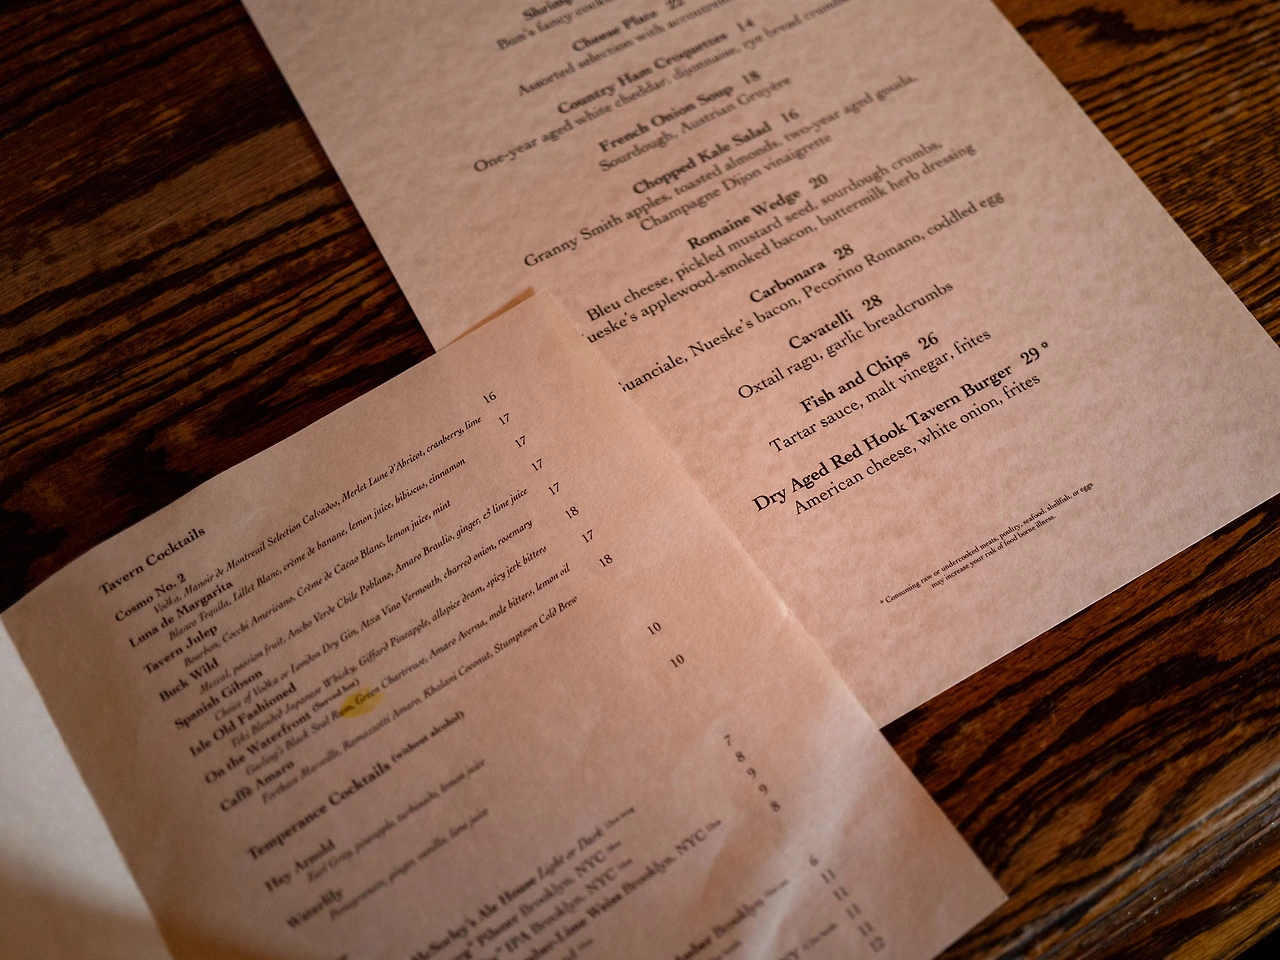 Shrimp
Bon's fancy cockt
Cheese Plate 22
Assorted selection with accoutrem
Country Ham Croquettes 14
One-year aged white cheddar, dijonnaise, rye bread crumb
French Onion Soup 18
Sourdough, Austrian Gruyère
Chopped Kale Salad 16
Granny Smith apples, toasted almonds, two-year aged gouda,
Champagne Dijon vinaigrette
Romaine Wedge 20
Bleu cheese, pickled mustard seed, sourdough crumbs,
ueske's applewood-smoked bacon, buttermilk herb dressing
Carbonara 28
uanciale, Nueske's bacon, Pecorino Romano, coddled egg
Cavatelli 28
Oxtail ragu, garlic breadcrumbs
Fish and Chips 26
Tartar sauce, malt vinegar, frites
Dry Aged Red Hook Tavern Burger 29 *
American cheese, white onion, frites
* Consuming raw or undercooked meats, poultry, seafood, shellfish, or eggs
may increase your risk of food borne illness.
Tavern Cocktails
Cosmo No. 2 16
Vodka, Manoir de Montreuil Selection Calvados, Merlet Lune d'Abricot, cranberry, lime
Luna de Margarita 17
Blanco Tequila, Lillet Blanc, crème de banane, lemon juice, hibiscus, cinnamon
Tavern Julep 17
Bourbon, Cocchi Americano, Crème de Cacao Blanc, lemon juice, mint
Buck Wild 17
Mezcal, passion fruit, Ancho Verde Chile Poblano, Amaro Braulio, ginger, & lime juice
Spanish Gibson 17
Choice of Vodka or London Dry Gin, Atxa Vino Vermouth, charred onion, rosemary
Isle Old Fashioned 18
Toki Blended Japanese Whisky, Giffard Pineapple, allspice dram, spicy jerk bitters
On the Waterfront (Served hot) 17
Gosling's Black Seal Rum, Green Chartreuse, Amaro Averna, mole bitters, lemon oil
Caffè Amaro 18
Forthave Marseille, Ramazzotti Amaro, Kalani Coconut, Stumptown Cold Brew
Temperance Cocktails (without alcohol)
Hey Arnold 10
Earl Grey, pineapple, turbinado, lemon juice
Waterlily 10
Pomegranate, ginger, vanilla, lime juice
McSorley's Ale House Light or Dark 7
Pilsner Brooklyn, NYC 8
" IPA Brooklyn, NYC 9
mber-Lime Weiss Brooklyn, NYC 9
8
6
Amber Brooklyn 11
11
11
12